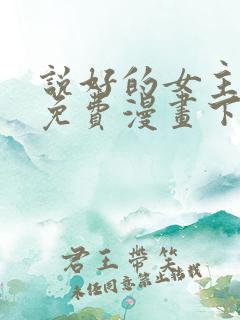 説好的女主
免費漫畫下
君王帶笑
未经同意禁止转载